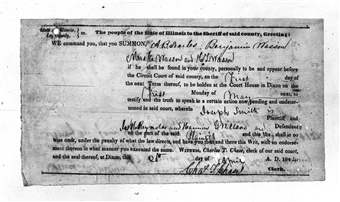 State of Illinois, Lee County, } ss. The people of the State of Illinois to the Sheriff of said county, Greeting:
WE command you, that you SUMMON, Benjamin Wasson
Wasson and Wasson
if he shall be found in your county, personally to be and appear before
the Circuit Court of said county, on the First day of
the next Term thereof, to be holden at the Court House in Dixon on the
First Monday of May next, to
testify and the truth to speak in a certain action now pending and undetermined
in said court, wherein Joseph Smith is
Plaintiff and
Reynolds and Harmon Wilson Defendants
on the part of the said Plaintiff and this you shall in no
wise omit, under the penalty of what the law directs, and have you then and there this Writ, with an endorsement
thereon in what manner you executed the same. WITNESS, Charles T. Chase, clerk of our said court,
and the seal thereof, at Dixon, this day of A. D. 184
Chas. T. Chase Clerk.